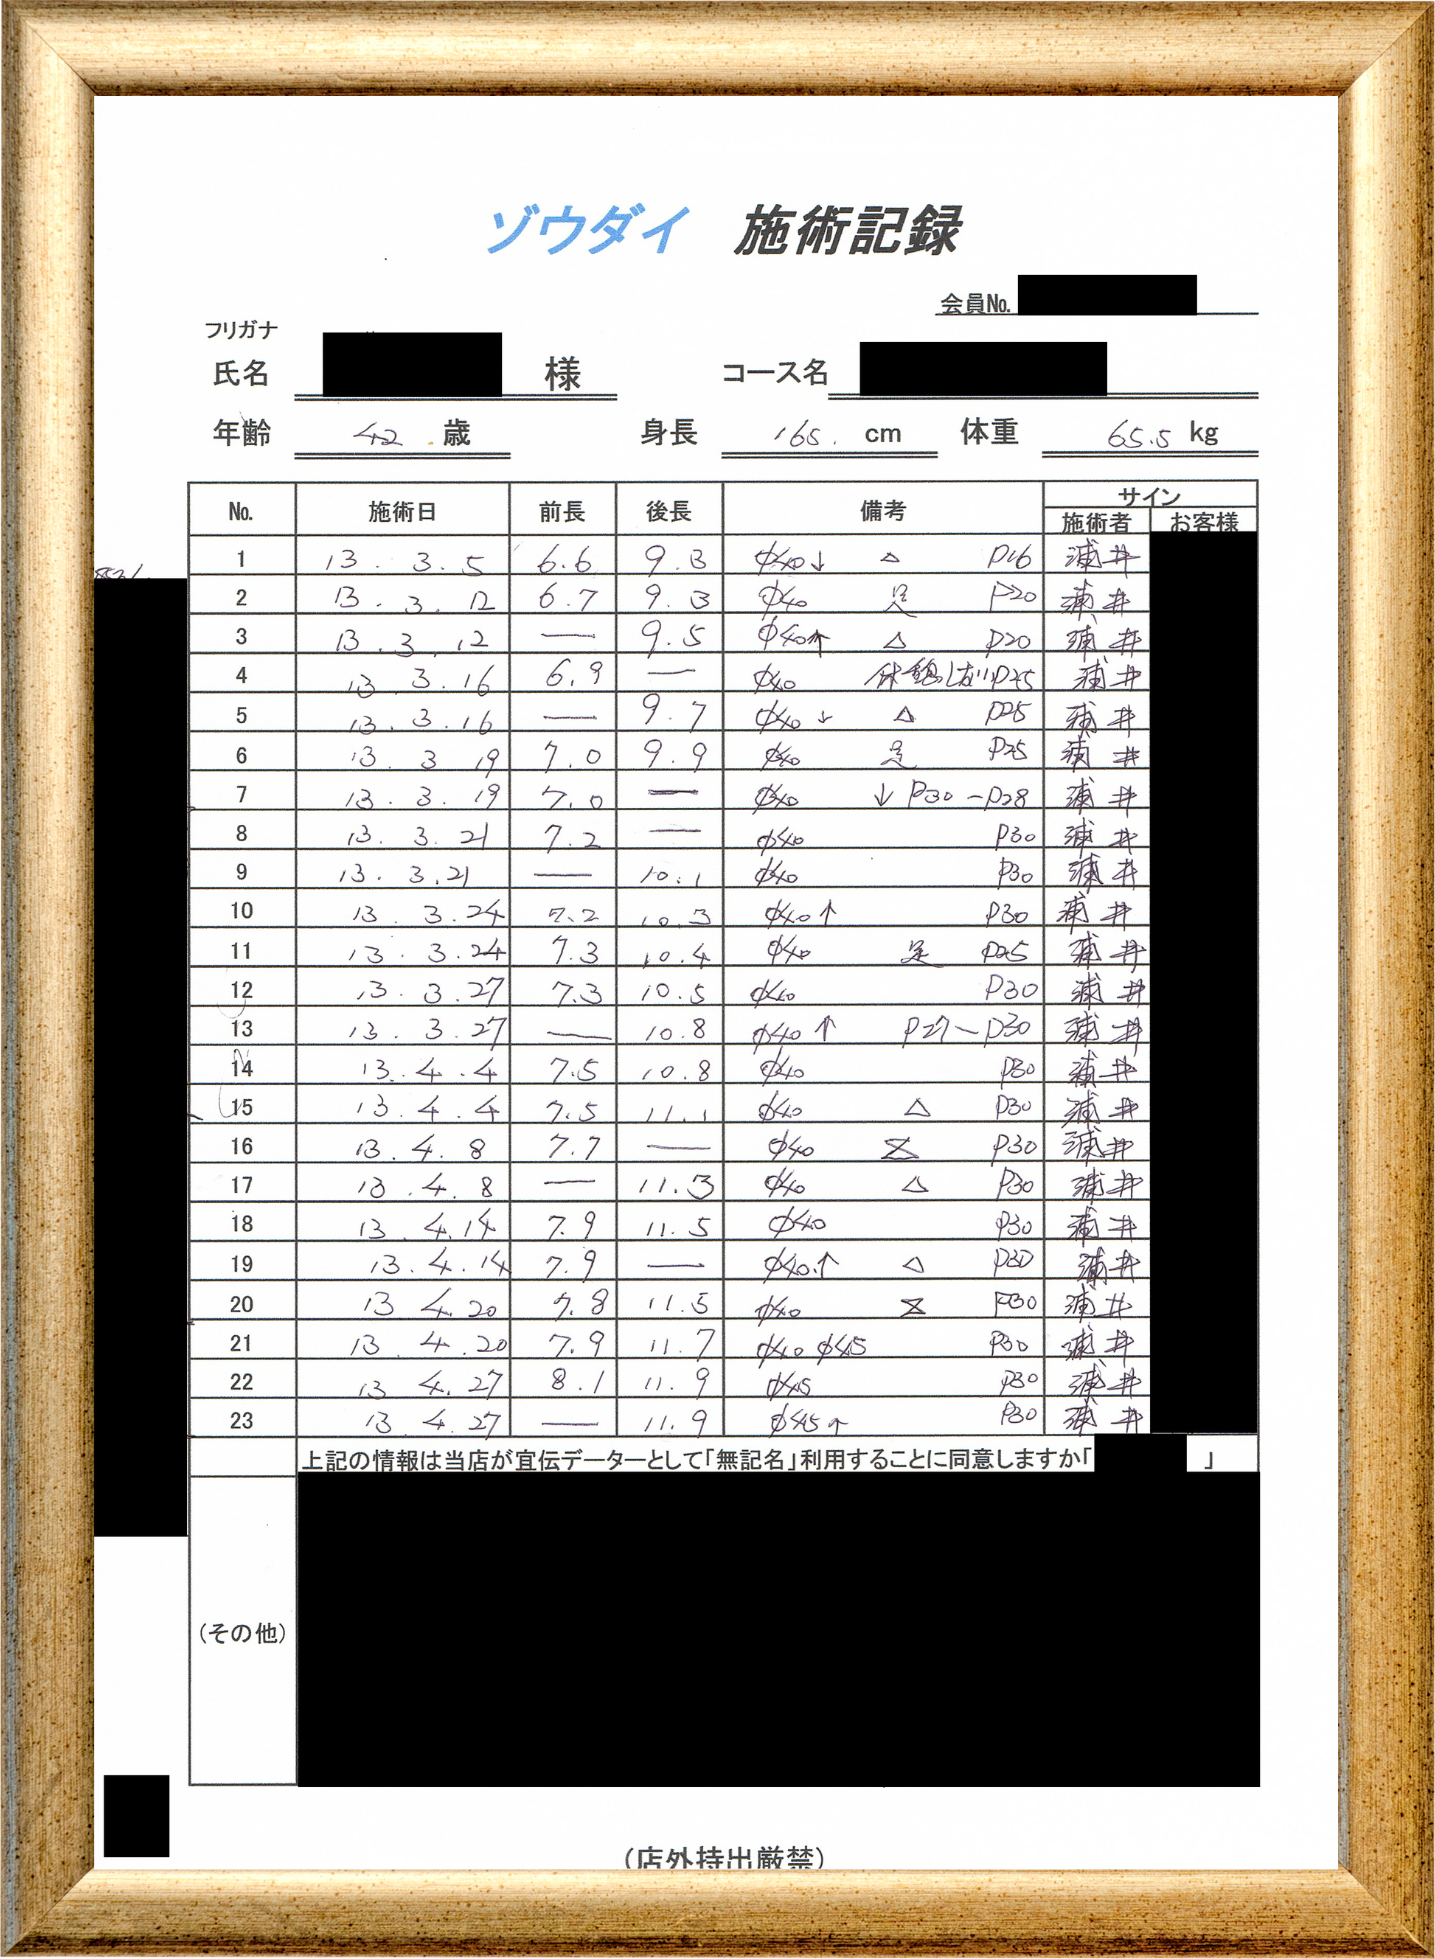 ゾウダイ 施術記録
会員No.
フリガナ
氏名 様 コース名
年齢 42 歳 身長 165. cm 体重 65.5 kg
No. 施術日 前長 後長 備考 サイン
施術者 お客様
1 13. 3. 5 6.6 9.3 φ40↓ △ P16 浦井
2 13. 3. 12 6.7 9.3 φ40 足 P20 浦井
3 13. 3. 12 — 9.5 φ40↑ △ P20 浦井
4 13. 3. 16 6.9 — φ40 休憩しない P25 浦井
5 13. 3. 16 — 9.7 φ40↓ △ P25 浦井
6 13. 3 19 7.0 9.9 φ40 足 P25 浦井
7 13. 3. 19 7.0 — φ40 ↓ P30-P28 浦井
8 13. 3. 21 7.2 — φ40 P30 浦井
9 13. 3.21 — 10.1 φ40 P30 浦井
10 13. 3.24 7.2 10.3 φ40↑ P30 浦井
11 13. 3.24 7.3 10.4 φ40 足 P25 浦井
12 13. 3.27 7.3 10.5 φ40 P30 浦井
13 13. 3.27 — 10.8 φ40↑ P27-P30 浦井
14 13. 4. 4 7.5 10.8 φ40 P30 浦井
15 13. 4. 4 7.5 11.1 φ40 △ P30 浦井
16 13. 4. 8 7.7 — φ40 P30 浦井
17 13. 4. 8 — 11.3 φ40 △ P30 浦井
18 13. 4.14 7.9 11.5 φ40 P30 浦井
19 13. 4. 14 7.9 — φ40.↑ △ P30 浦井
20 13 4.20 7.8 11.5 φ40 P30 浦井
21 13. 4. 20 7.9 11.7 φ40 φ45 P30 浦井
22 13 4.27 8.1 11.9 φ45 P30 浦井
23 13 4.27 — 11.9 φ45↑ P30 浦井
上記の情報は当店が宣伝データーとして「無記名」利用することに同意しますか「 」
(その他)
(店外持出厳禁)